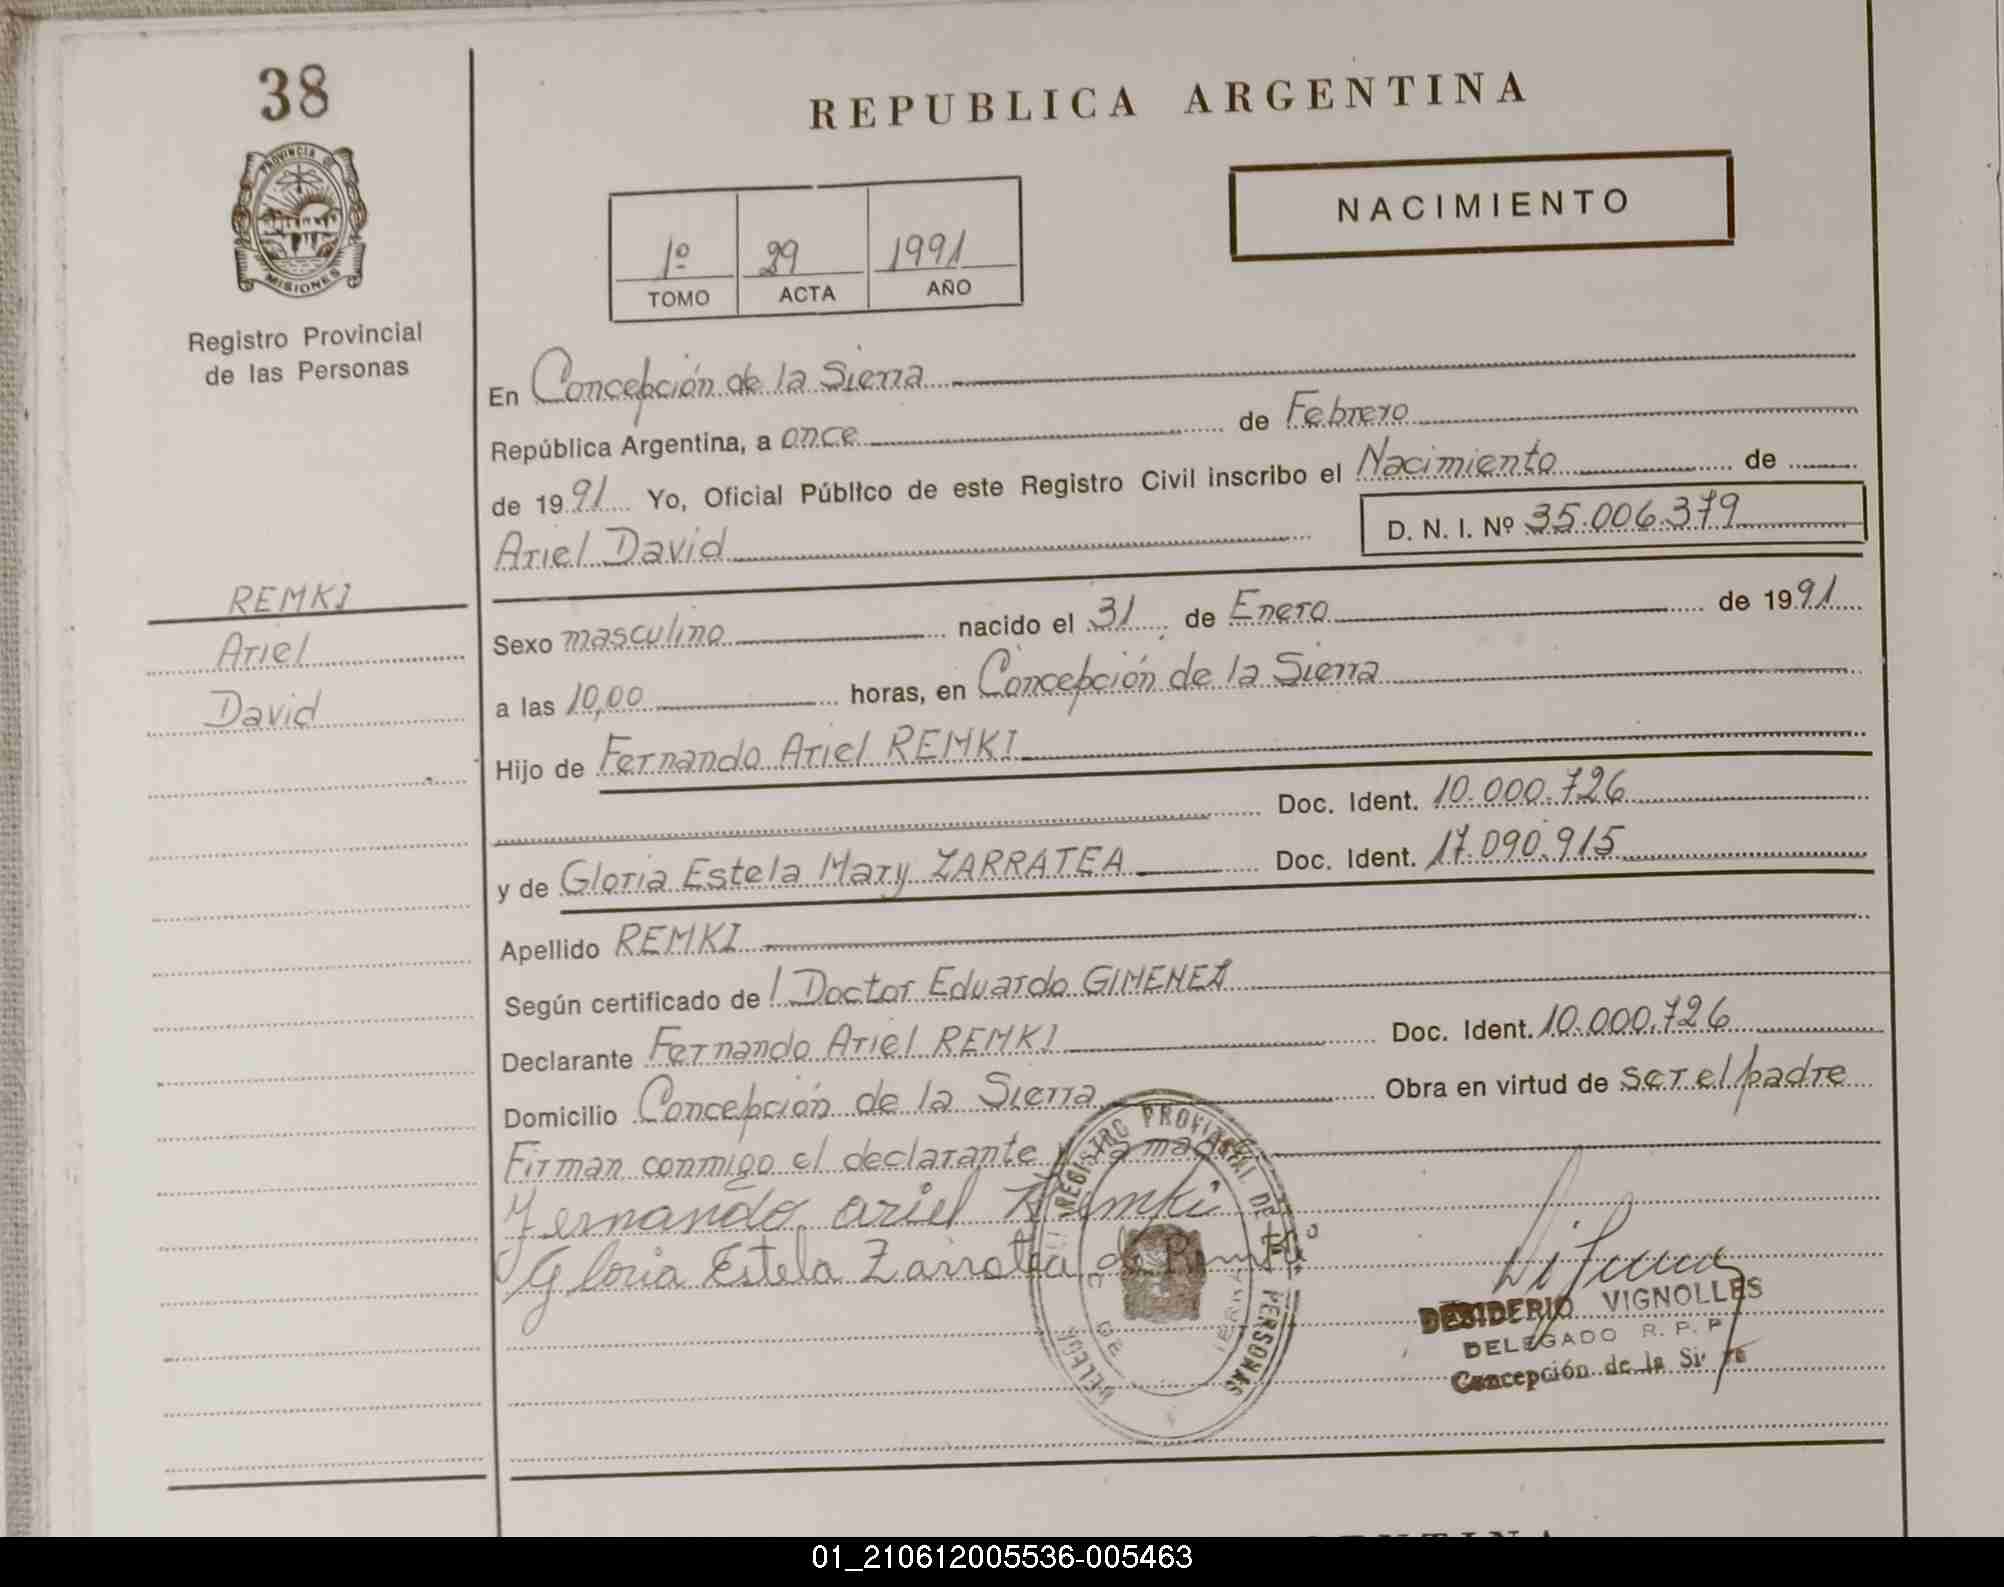 38
PROVINCIA DE
MISIONES
Registro Provincial
de las Personas
REPUBLICA ARGENTINA
NACIMIENTO
1º 29 1991
TOMO ACTA AÑO
En Concepción de la Sierra
República Argentina, a once de Febrero
de 1991 Yo, Oficial Público de este Registro Civil inscribo el Nacimiento de
Ariel David D. N. I. Nº 35.006.379
REMKI
Ariel
David
Sexo masculino nacido el 31 de Enero de 1991
a las 10,00 horas, en Concepción de la Sierra
Hijo de Fernando Ariel REMKI
Doc. Ident. 10.000.726
y de Gloria Estela Mary ZARRATEA Doc. Ident. 17.090.915
Apellido REMKI
Según certificado de l Doctor Eduardo GIMENEZ
Declarante Fernando Ariel REMKI Doc. Ident. 10.000.726
Domicilio Concepción de la Sierra Obra en virtud de ser el padre
Firman conmigo el declarante y la madre
Fernando ariel Remki
Gloria Estela Zarratea de Remki
REGISTRO PROVINCIAL DE PERSONAS
DESIDERIO VIGNOLLES
DELEGADO R. P. P.
Concepción de la
01_210612005536-005463